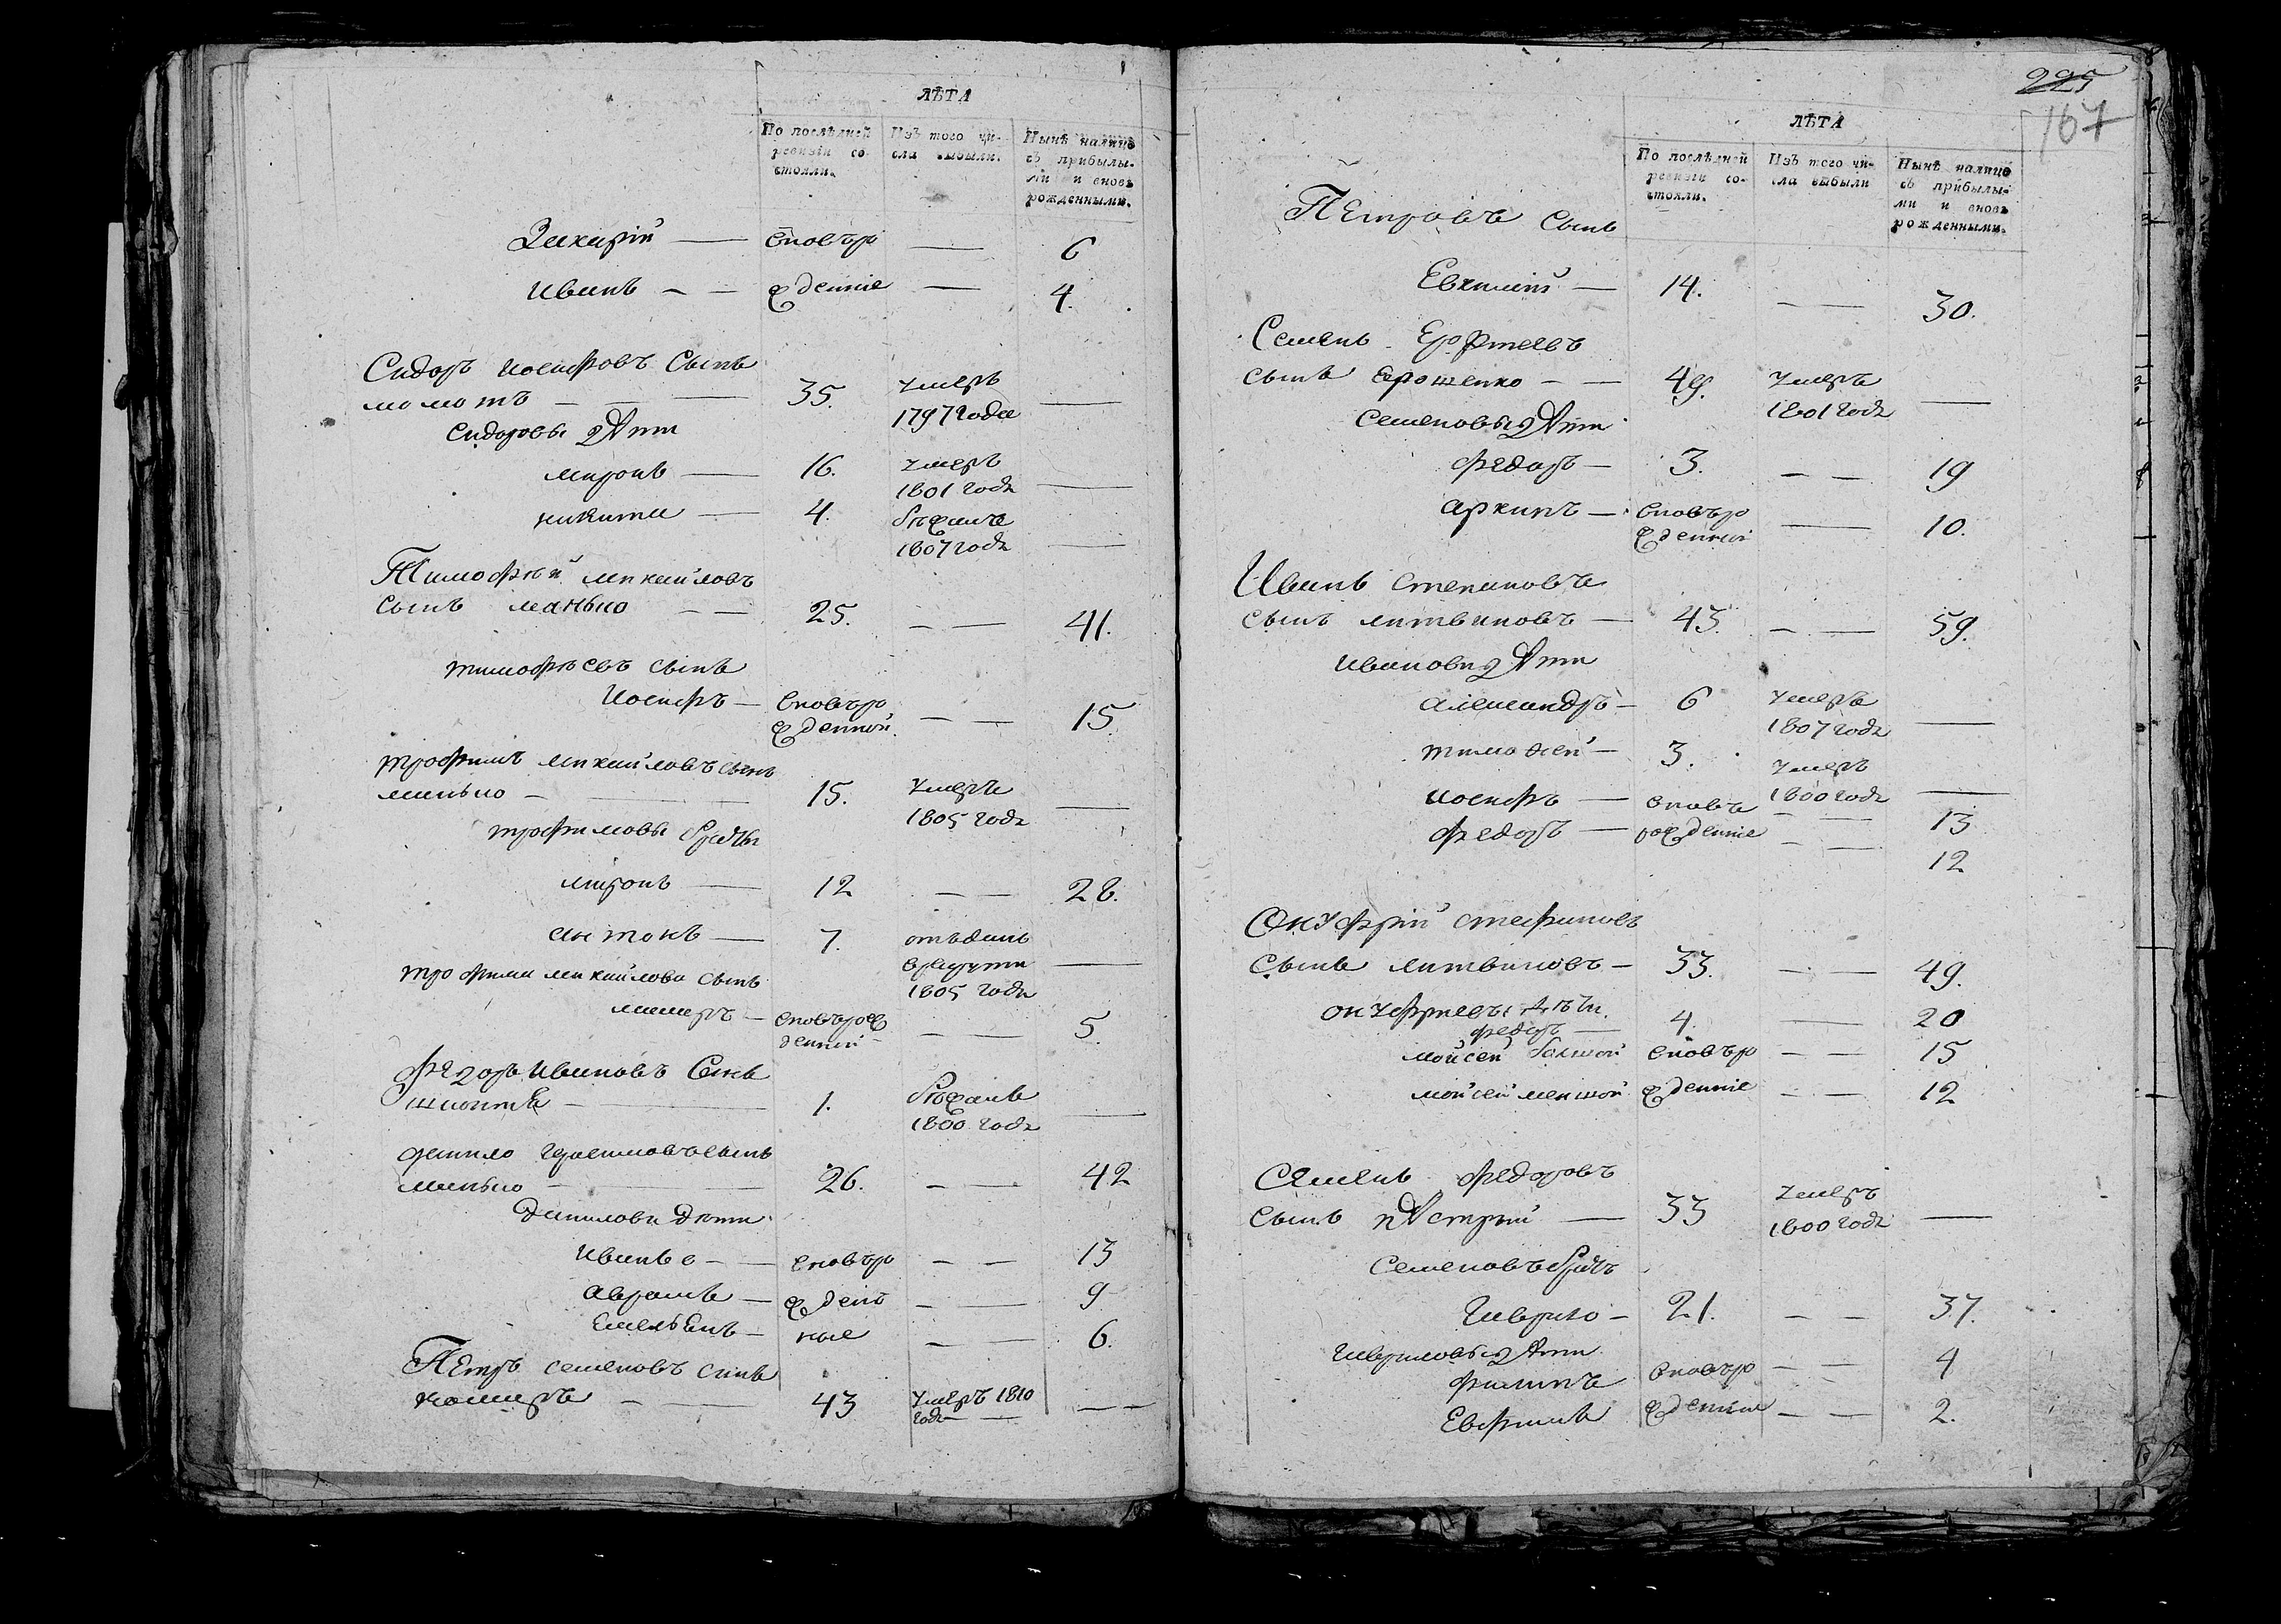 ЛѢТА
По послѣдней ревизіи состояли. Изъ того числа выбыли. Нынѣ налицо съ прибылыми и вновь рожденными.
Захарій — вновьро — 6
Иванъ — жденніе — 4.
Сидоръ Иосифовъ Сынъ
момотъ — 35. умеръ 1797 года —
Сидоровы дѣти
миронъ — 16. умеръ 1801 года —
никита — 4. бѣжалъ 1807 года —
Тимофѣй михайловъ
Сынъ манько — 25. — 41.
тимофѣевъ сынъ
Иосифъ — вновьро жденной — 15.
трофимъ михайловъ сынъ
манько — 15. умеръ 1805 года —
трофимовы братья
миронъ — 12 — 28.
антонъ — 7. отъданъ врекруты 1805 года —
трофима михайлова сынъ
макаръ — вновьрож денной — 5.
Федоръ Ивановъ Сынъ
1. бѣжалъ 1800 года —
данило герасимовъ сынъ
манько — 26. — 42
Даниловы дѣти
Иванъ — вновьро — 13
Аврамъ — жден — 9
Емельянъ — ные — 6.
Петръ семеновъ сынъ
43 умеръ 1810 года —
225
167
ЛѢТА
По послѣдней ревизіи состояли. Изъ того числа выбыли Нынѣ налицо съ прибылыми и вновь рожденными.
Петровъ сынъ
14. — 30.
Семенъ
сынъ Ярошенко — 49. умеръ 1801 года —
Семеновы дѣти
Федоръ — 3. — 19
Архипъ — вновьро жденной — 10.
Иванъ степановъ
сынъ литвиновъ — 43. — 59.
Ивановы дѣти
Александръ — 6 умеръ 1807 года —
тимофей — 3. умеръ 1800 года —
Иосифъ — вновь — 13
Федоръ — рожденніе — 12
Онуфрій стефановъ
Сынъ литвиновъ — 33. — 49.
онуфріевы дѣти.
федоръ — 4. — 20
мойсей болшой вновьро — 15
мойсей меншой жденніе — 12
Семенъ Федоровъ
сынъ пѣстрій — 33 умеръ 1800 года —
Семеновъ братъ
Гаврило — 21. — 37.
Гавриловы дѣти
Филипъ вновьро — 4
Евфимъ жденніе — 2.